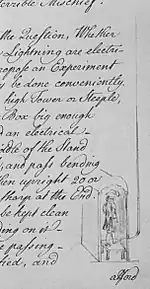 errible Mischief.
the Question, Whether
Lightning are electri-
ropose an Experiment
y be done conveniently.
high Tower or Steeple,
Box big enough
d an electrical-
iddle of the Stand
, and pass bending
hen upright 20 or
sharp at the End.
be kept clean
ding on it-
e passing-
fied, and